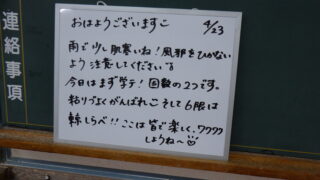 連絡事項
おはようございます 4/23
雨で少し肌寒いね!風邪をひかない
よう注意してください。
今日はまず学テ!国数の2つです。
粘りづよくがんばれ そして6限は
しらべ!!ここは皆で楽しく、ワクワク
しようね〜♡